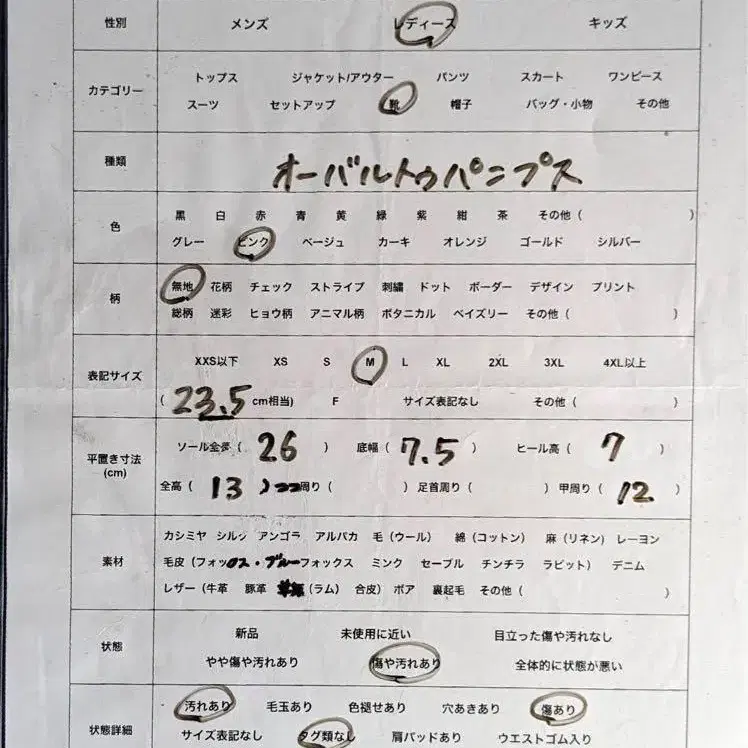 性別 メンズ レディース キッズ
カテゴリー トップス ジャケット/アウター パンツ スカート ワンピース
スーツ セットアップ 靴 帽子 バッグ・小物 その他
種類 オーバルトゥパンプス
色 黒 白 赤 青 黄 緑 紫 紺 茶 その他 ( )
グレー ピンク ベージュ カーキ オレンジ ゴールド シルバー
柄 無地 花柄 チェック ストライプ 刺繍 ドット ボーダー デザイン プリント
総柄 迷彩 ヒョウ柄 アニマル柄 ボタニカル ペイズリー その他 ( )
表記サイズ XXS以下 XS S M L XL 2XL 3XL 4XL以上
( 23.5 cm相当) F サイズ表記なし その他 ( )
平置き寸法 (cm) ソール全長 ( 26 ) 底幅 ( 7.5 ) ヒール高 ( 7 )
全高 ( 13 ) 周り ( ) 足首周り ( ) 甲周り ( 12 )
素材 カシミヤ シルク アンゴラ アルパカ 毛 (ウール) 綿 (コットン) 麻 (リネン) レーヨン
毛皮 (フォックス・ブルーフォックス ミンク セーブル チンチラ ラビット) デニム
レザー (牛革 豚革 (ラム) 合皮) ボア 裏起毛 その他 ( )
状態 新品 未使用に近い 目立った傷や汚れなし
やや傷や汚れあり 傷や汚れあり 全体的に状態が悪い
状態詳細 汚れあり 毛玉あり 色褪せあり 穴あきあり 傷あり
サイズ表記なし タグ類なし 肩パッドあり ウエストゴム入り